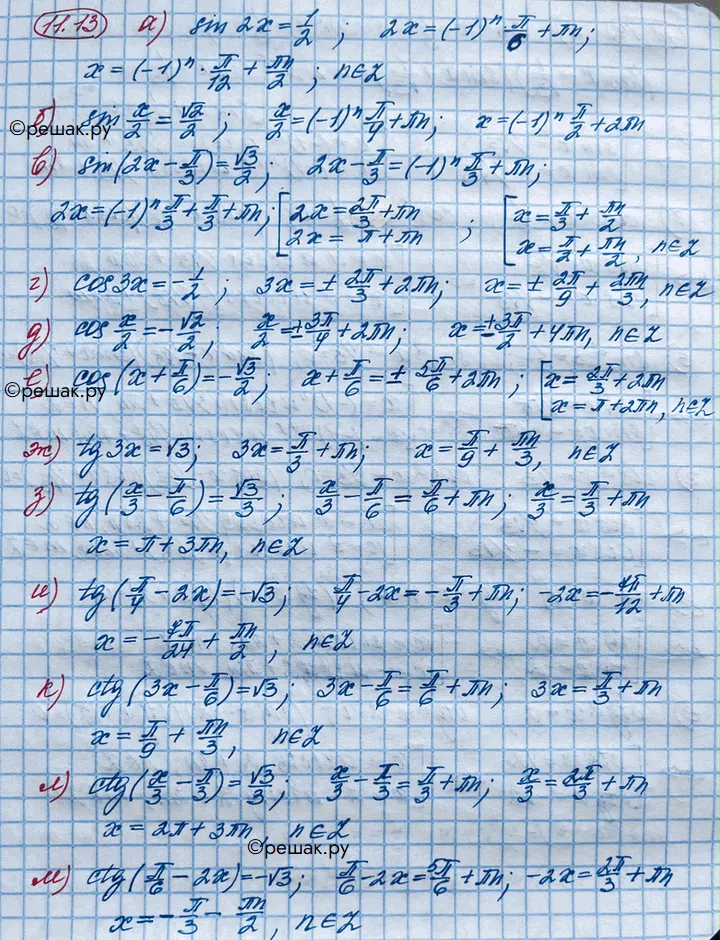 11.13 а) sin 2x = 1/2 ; 2x = (-1)ⁿ · π/6 + πn;
x = (-1)ⁿ · π/12 + πn/2 ; n∈Z
б) sin x/2 = √2/2 ; x/2 = (-1)ⁿ π/4 + πn; x = (-1)ⁿ π/2 + 2πn
©решак.ру
в) sin(2x - π/3) = √3/2 ; 2x - π/3 = (-1)ⁿ π/3 + πn;
2x = (-1)ⁿ π/3 + π/3 + πn; [ 2x = 2π/3 + πn ; [ x = π/3 + πn/2
2x = π + πn x = π/2 + πn/2, n∈Z
г) cos 3x = -1/2 ; 3x = ± 2π/3 + 2πn; x = ± 2π/9 + 2πn/3, n∈Z
д) cos x/2 = -√2/2 ; x/2 = ± 3π/4 + 2πn; x = ± 3π/2 + 4πn, n∈Z
е) cos(x + π/6) = -√3/2 ; x + π/6 = ± 5π/6 + 2πn ; [ x = 2π/3 + 2πn
©решак.ру
x = π + 2πn, n∈Z
ж) tg 3x = √3; 3x = π/3 + πn; x = π/9 + πn/3, n∈Z
з) tg(x/3 - π/6) = √3/3 ; x/3 - π/6 = π/6 + πn; x/3 = π/3 + πn
x = π + 3πn, n∈Z
и) tg(π/4 - 2x) = -√3; π/4 - 2x = -π/3 + πn; -2x = -7π/12 + πn
x = -7π/24 + πn/2, n∈Z
к) ctg(3x - π/6) = √3; 3x - π/6 = π/6 + πn; 3x = π/3 + πn
x = π/9 + πn/3, n∈Z
л) ctg(x/3 - π/3) = √3/3 ; x/3 - π/3 = π/3 + πn; x/3 = 2π/3 + πn
x = 2π + 3πn, n∈Z
©решак.ру
м) ctg(π/6 - 2x) = -√3; π/6 - 2x = 5π/6 + πn; -2x = 2π/3 + πn
x = -π/3 - πn/2, n∈Z